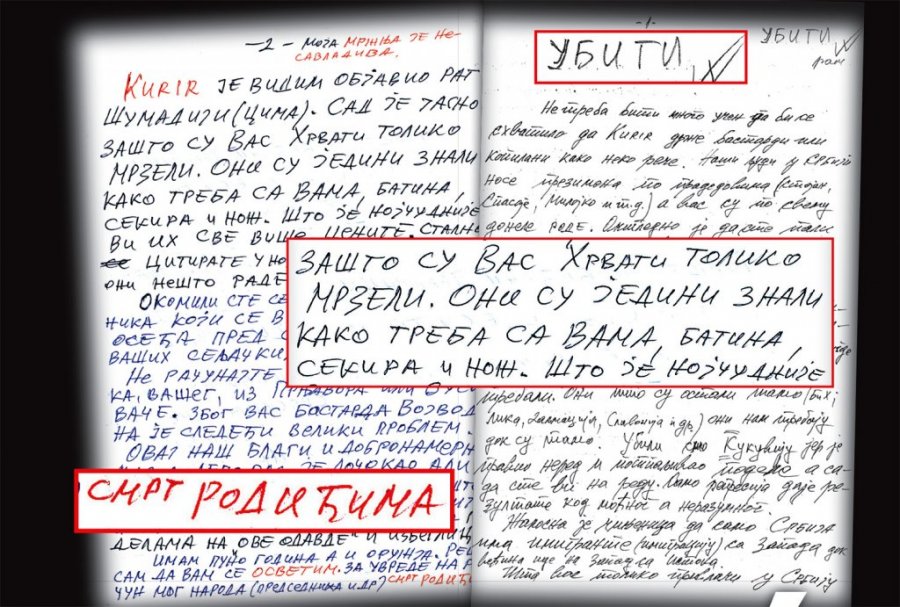 -2- МОЈА МРЖЊА ЈЕ НЕ-
САВЛАДИВА.
KURIR ЈЕ ВИДИМ ОБЈАВИО РАТ
ШУМАДИЈИ (ЦИМА). САД ЈЕ ЈАСНО
ЗАШТО СУ ВАС ХРВАТИ ТОЛИКО
МРЗЕЛИ. ОНИ СУ ЈЕДИНИ ЗНАЛИ
КАКО ТРЕБА СА ВАМА, БАТИНА,
СЕКИРА И НОЖ. ШТО ЈЕ НОЈЧУДНИЈЕ
ВИ ИХ СВЕ ВИШЕ ЦЕНИТЕ. СТАЛНО
ЦИТИРАТЕ
ОНИ НЕШТО РАДЕ
ОКОМИЛИ СТЕ СЕ
НИКА КОЈИ СЕ В
ОСЕЂА ПРЕД С
ВАШИХ СЕЉАЧКИ
НЕ РАЧУНАЈТЕ
КА, ВАШЕГ, ИЗ ПРЊАВОРА ИЛИ
ВАЧЕ. ЗБОГ ВАС БАСТАРДА ВОЈВОД
НА ЈЕ СЛЕДЕЋИ ВЕЛИКИ ПРОБЛЕМ
ОВАЈ НАШ БЛАГИ И ДОБРОНАМЕРН
СМРТ РОДИЂИМА
ДЕЛАМА НА ОВЕ ОДАВДЕ И ИЗБЕГЛИЦ
ИМАМ ПУНО ГОДИНА А И ОРУЖЈА. РЕШ
САМ ДА ВАМ СЕ ОСВЕТИМ. ЗА УВРЕДЕ НА Р
ЧУН МОГ НАРОДА (ПРЕДСЕДНИКА И ДР) СМРТ РОДИЂ
-1-
УБИТИ,
УБИТИ,
Не треба бити много учен да би се
схватило да Kurir држе бастарди или
копилани како неко рече. Наши људи у Србији
носе презимена по прадедовима (Стојан,
Спасоје, Милојко и т.д.) а вас су по свему
ЗАШТО СУ ВАС ХРВАТИ ТОЛИКО
МРЗЕЛИ. ОНИ СУ ЈЕДИНИ ЗНАЛИ
КАКО ТРЕБА СА ВАМА, БАТИНА,
СЕКИРА И НОЖ. ШТО ЈЕ НОЈЧУДНИЈЕ
предали. Они што су остали тамо (Бих,
Лика, Далмација, Славонија и др.) они нам требају
док су тамо. Убили смо Кукавицу јер је
правио неред и мотивисао поделе а са-
да сте ви на реду. Само репресија даје ре-
зултате код моћног а неразумног.
Жалосна је чињеница да само Србија
има имигранте (имиграцију) са Запада док
већина иде на Запад са Истока.
Шта вас толико привлачи у Србију